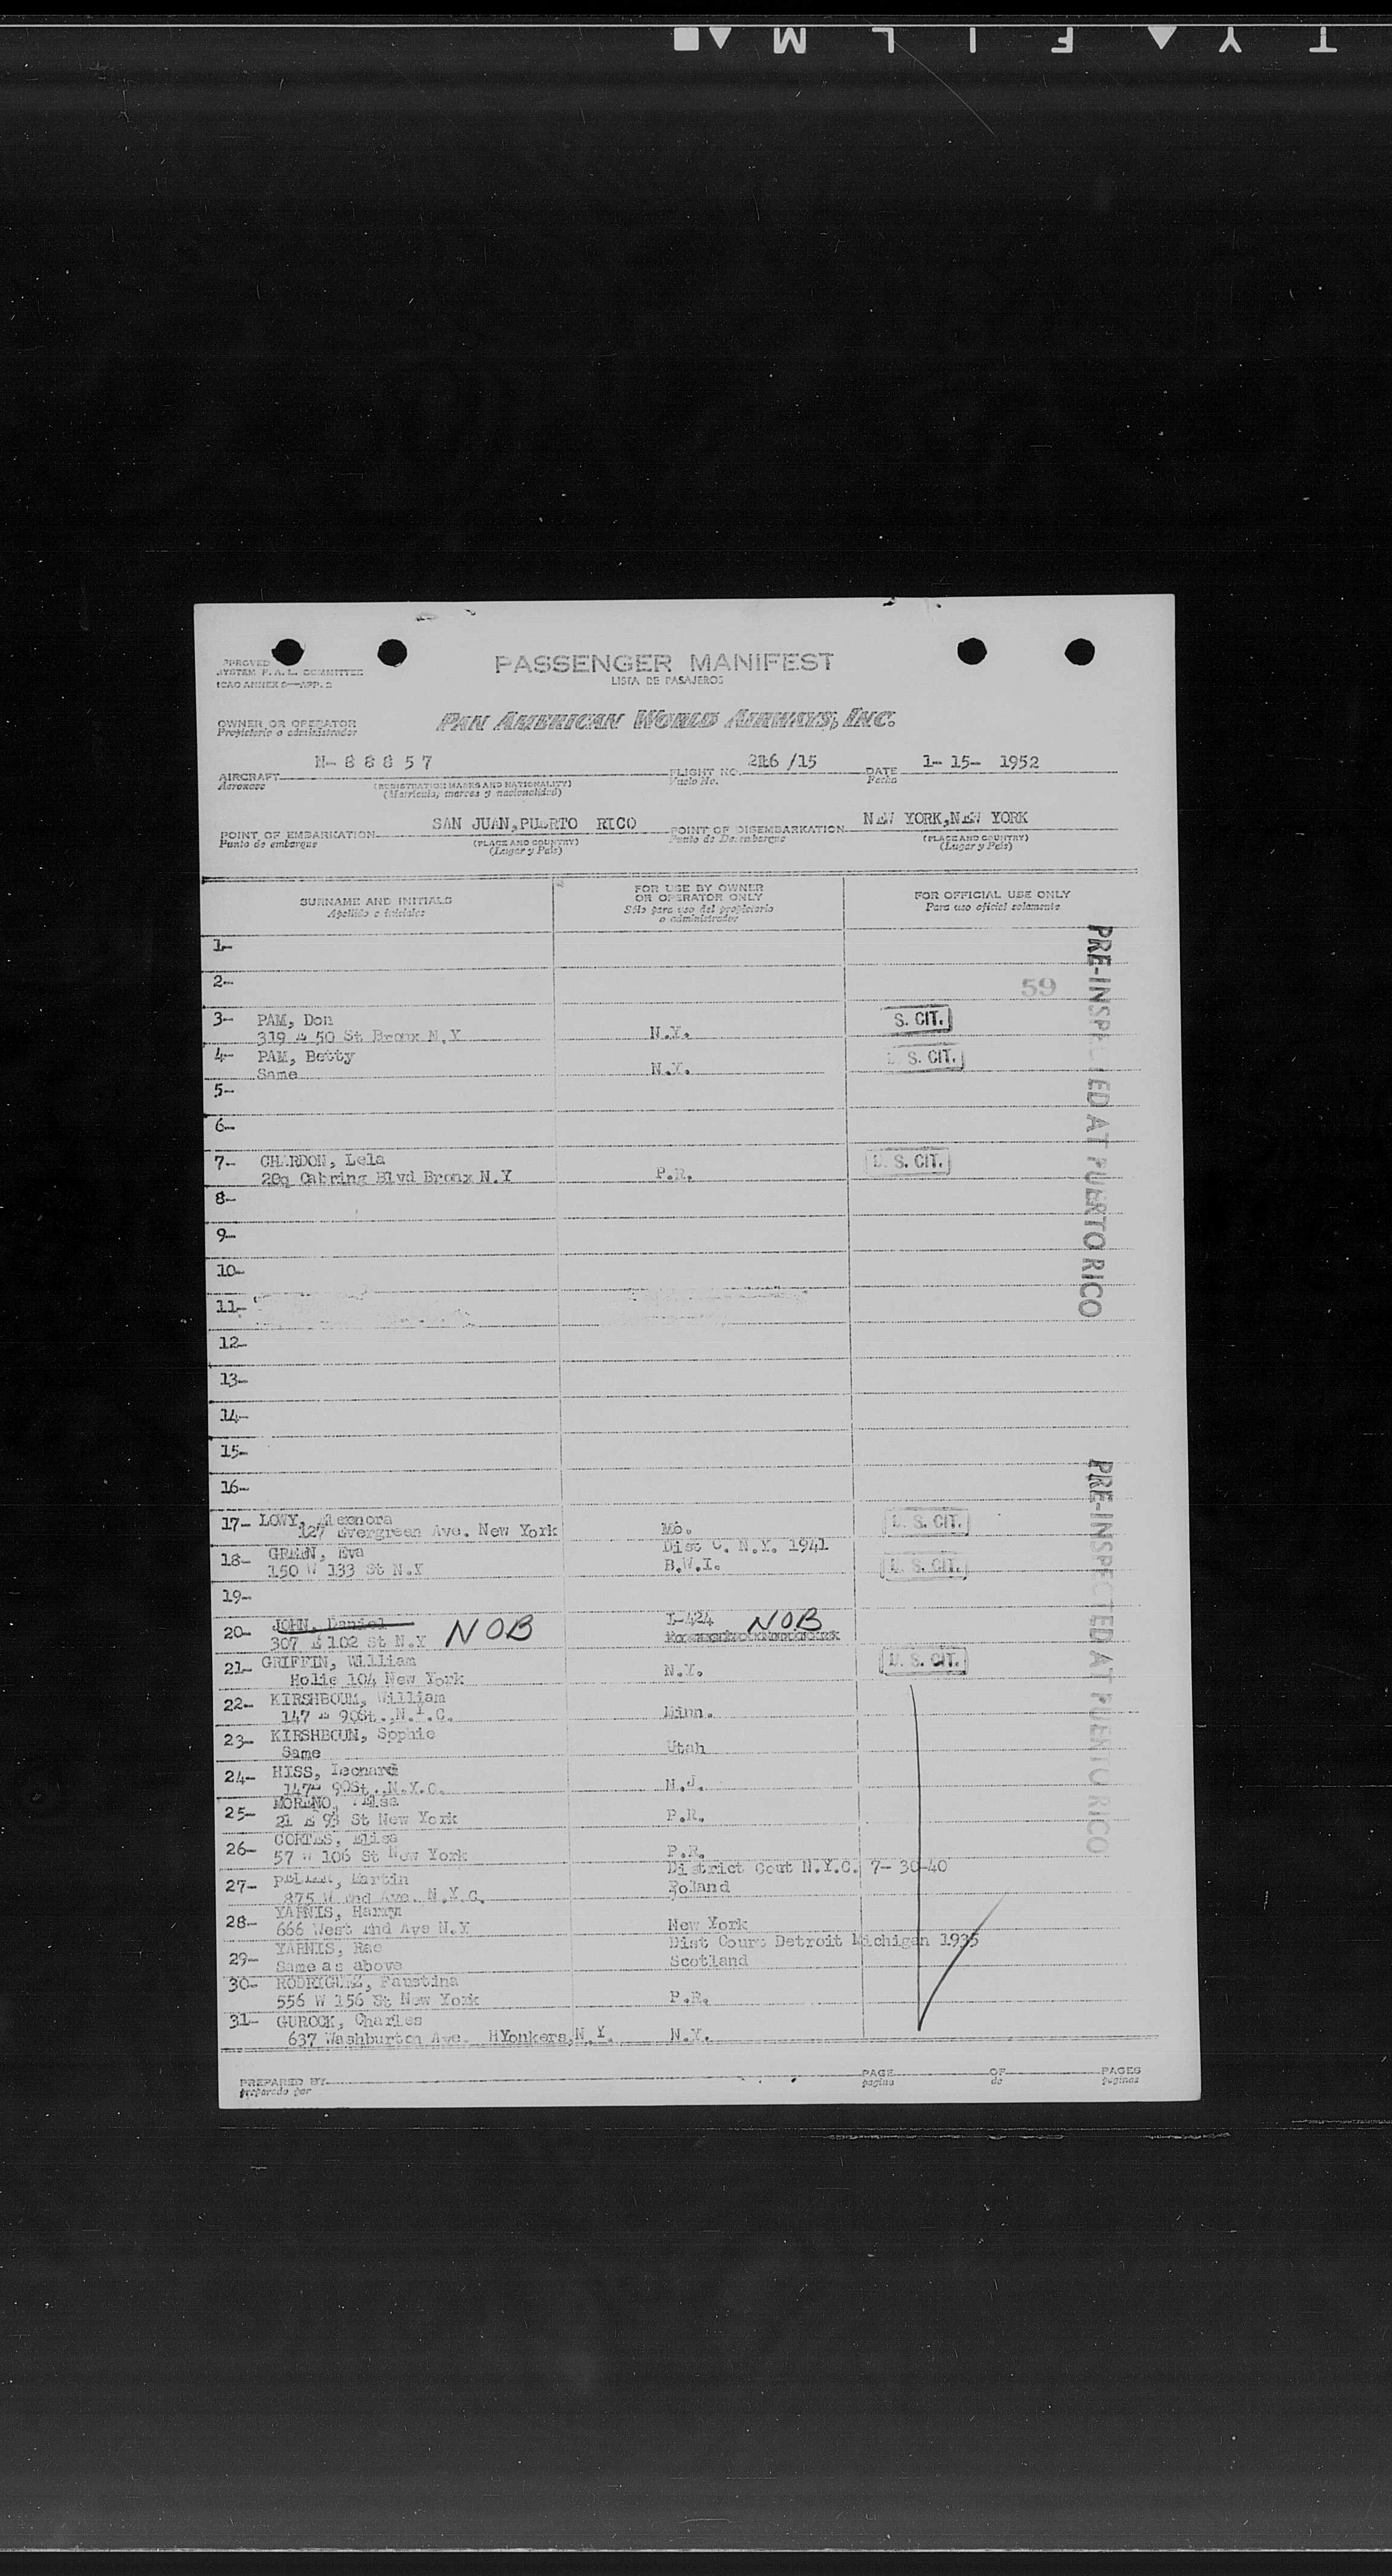 T Y ▲ F I L M ▲ ■
APPROVED
SYSTEM F. A. L. COMMITTEE
ICAO ANNEX 9—APP. 2
PASSENGER MANIFEST
LISTA DE PASAJEROS
OWNER OR OPERATOR
Propietario o administrador
PAN AMERICAN WORLD AIRWAYS, INC.
AIRCRAFT N- 8 8 8 5 7 FLIGHT NO. 216 /15 DATE 1- 15- 1952
Aeronave (REGISTRATION MARKS AND NATIONALITY) Vuelo No. Fecha
(Matrícula, marcas y nacionalidad)
POINT OF EMBARKATION SAN JUAN, PUERTO RICO POINT OF DISEMBARKATION NEW YORK, NEW YORK
Punto de embarque (PLACE AND COUNTRY) Punto de Desembarque (PLACE AND COUNTRY)
(Lugar y País) (Lugar y País)
SURNAME AND INITIALS
Apellido e iniciales
FOR USE BY OWNER
OR OPERATOR ONLY
Sólo para uso del propietario
o administrador
FOR OFFICIAL USE ONLY
Para uso oficial solamente
1-
2- 59
3- PAM, Don S. CIT.
319 E 50 St Bronx N.Y N.Y.
4- PAM, Betty U. S. CIT.
Same N.Y.
5-
6-
7- CHARDON, Lela U. S. CIT.
20q Cabring Blvd Bronx N.Y P.R.
8-
9-
10-
11-
12-
13-
14-
15-
16-
17- LOWY, Eleonora U. S. CIT.
127 Evergreen Ave. New York Mo.
18- GREEN, Eva Dist C. N.Y. 1941
150 W 133 St N.Y B.W.I. U. S. CIT.
19-
20- JOHN, Daniel NOB I-424 NOB
307 E 102 St N.Y
21- GRIFFIN, William U. S. CIT.
Holie 104 New York N.Y.
22- KIRSHBOUM, William
147 E 90St. N.Y.C. Minn.
23- KIRSHBOUN, Sophie
Same Utah
24- HISS, Leonard
147E 90St. N.Y.C. N.J.
25- MORENO, Elsa
21 E 93 St New York P.R.
26- CORTES, Elisa
57 W 106 St New York P.R.
27- Martin District Cout N.Y.C. 7- 30-40
875 W End Ave. N.Y.C. Poland
28- YARNIS, Harry
666 West End Ave N.Y New York
29- YARNIS, Rae Dist Court Detroit Michigan 1935
Same as above Scotland
30- RODRIGUEZ, Faustina
556 W 156 St New York P.R.
31- GUROCK, Charles
637 Washburton Ave. HYonkers, N.Y. N.Y.
PRE-INSPECTED AT PUERTO RICO
PRE-INSPECTED AT PUERTO RICO
PREPARED BY PAGE OF PAGES
preparado por página de páginas